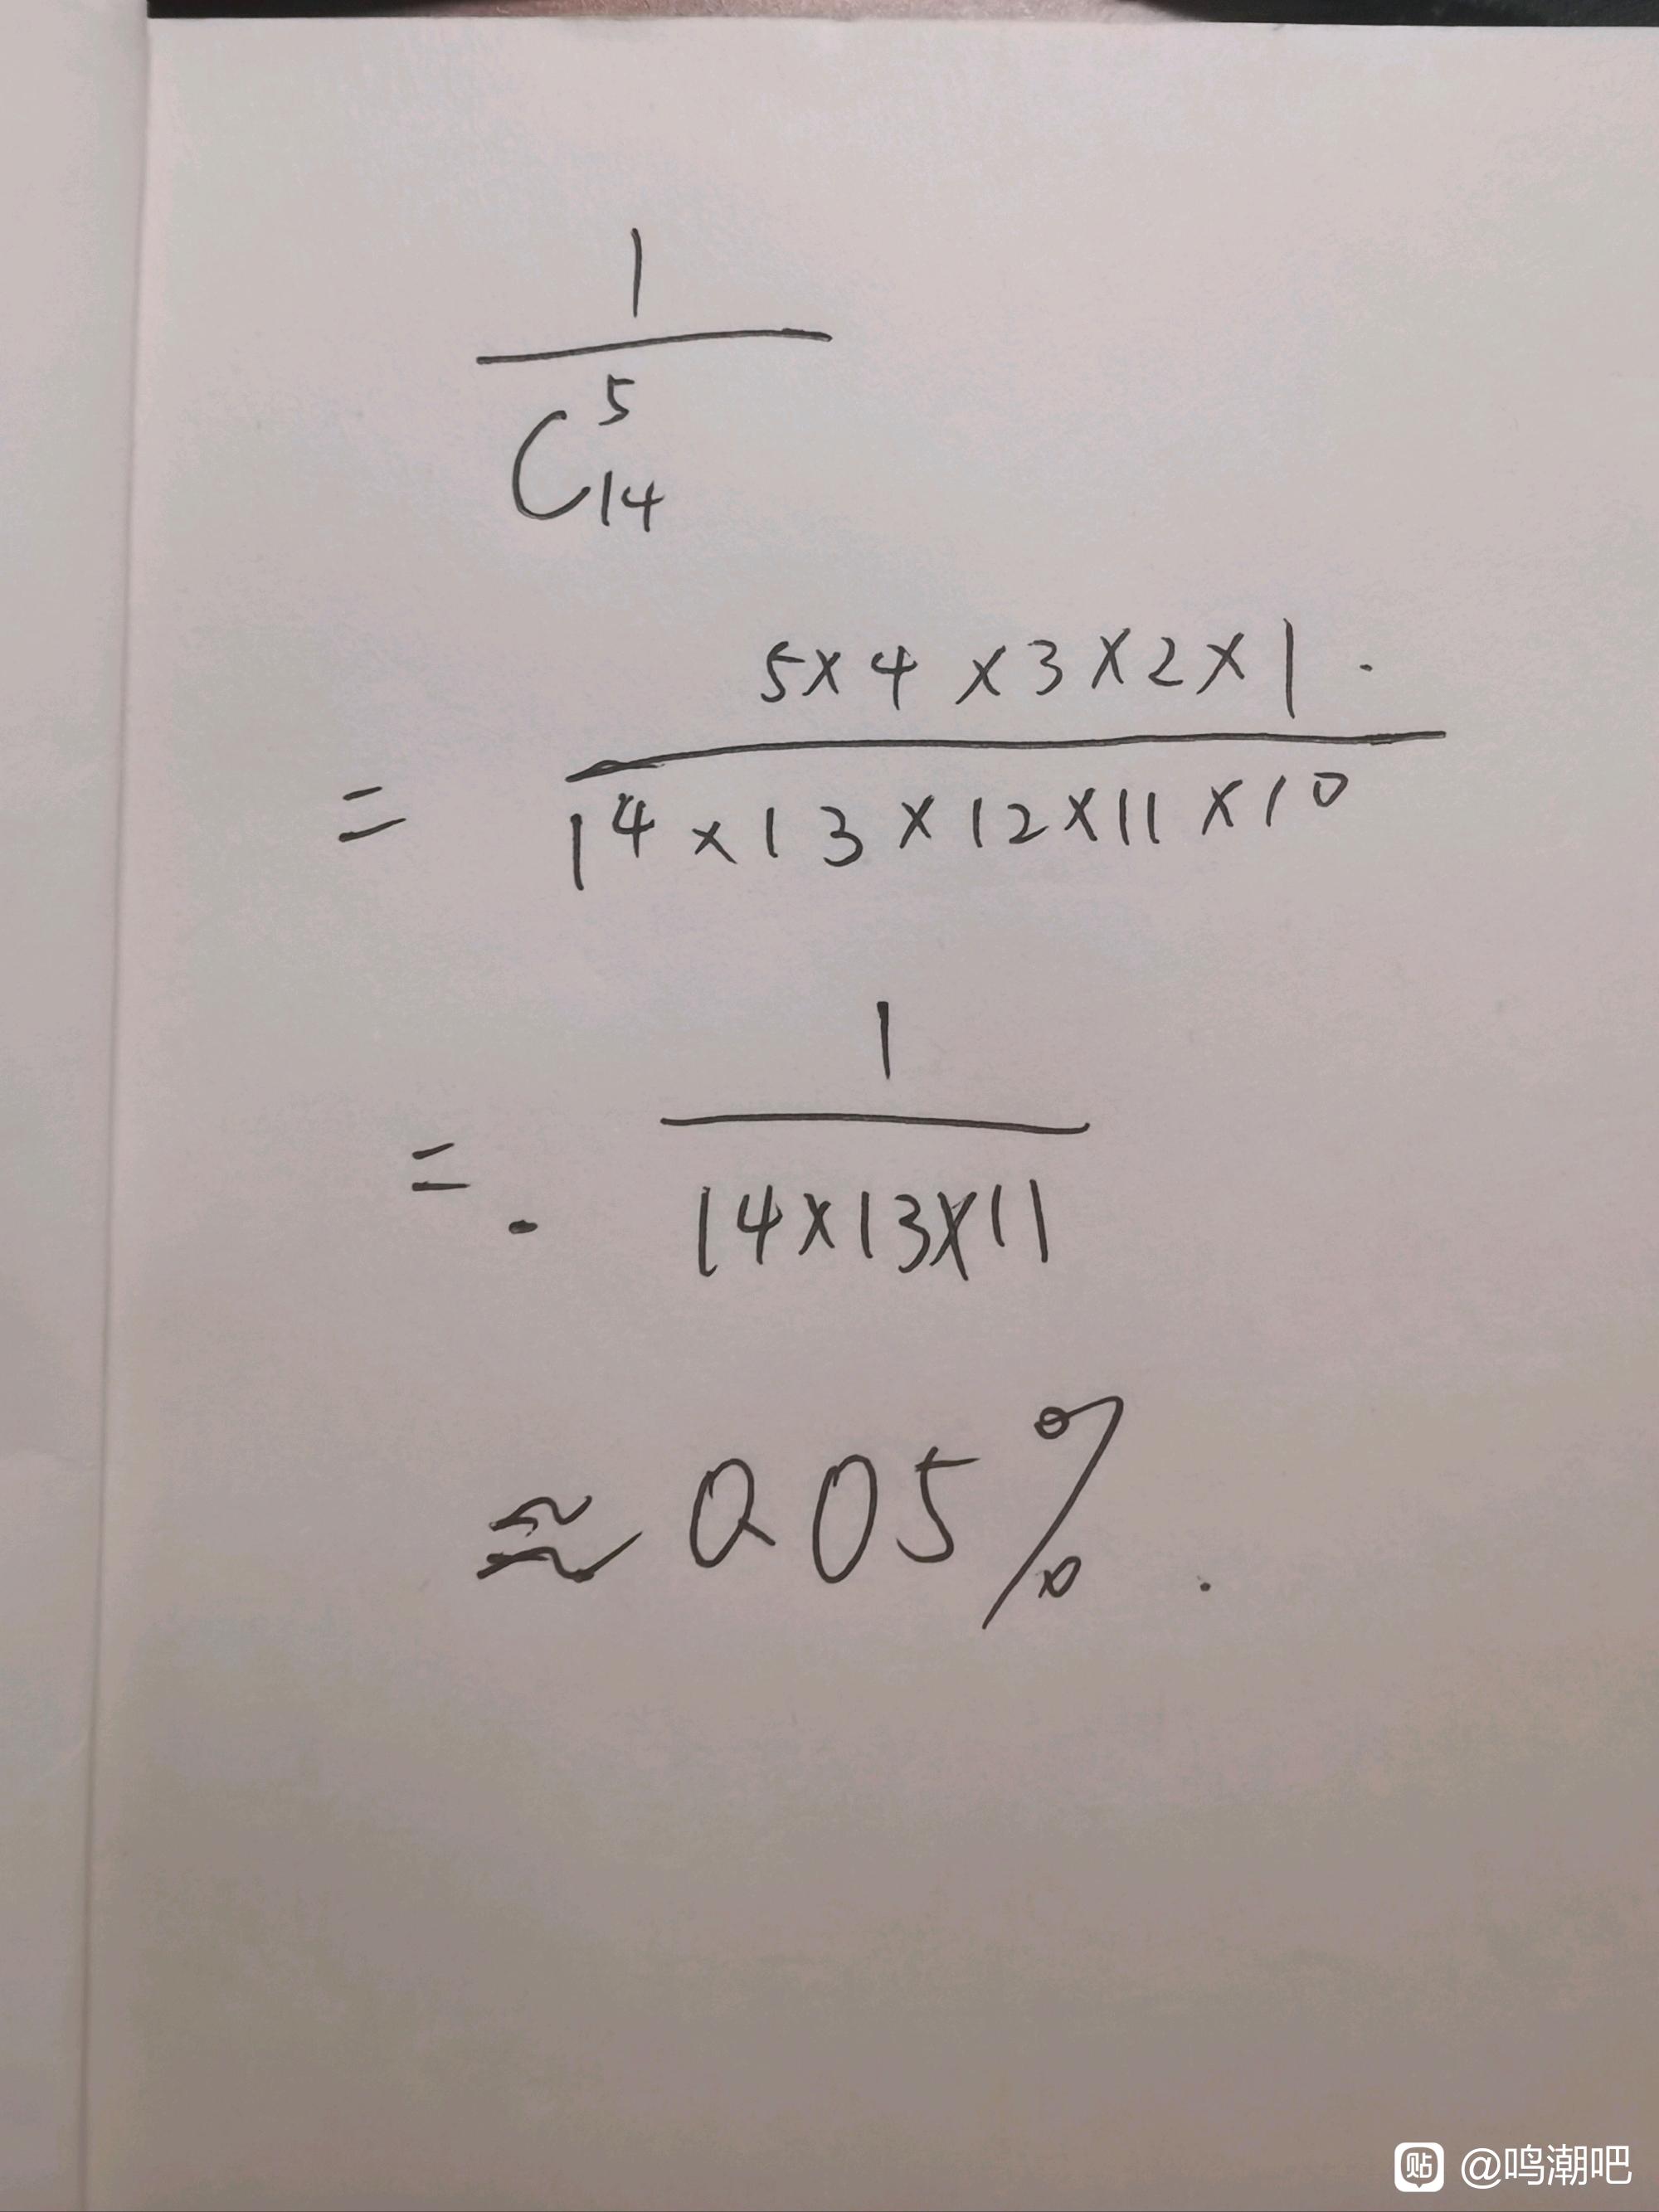 1
C 5 14
5×4×3×2×1.
= 14×13×12×11×10
1
=. 14×13×11
≈0.05%.
贴 @鸣潮吧